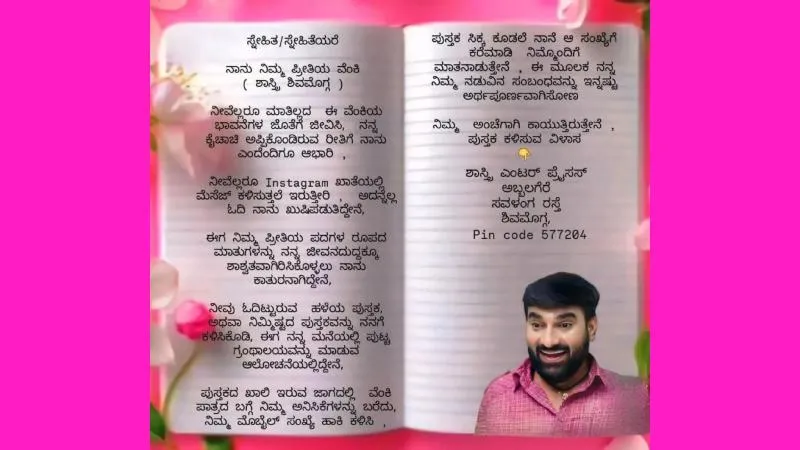 ಸ್ನೇಹಿತ/ಸ್ನೇಹಿತೆಯರೆ
ನಾನು ನಿಮ್ಮ ಪ್ರೀತಿಯ ವೆಂಕಿ
( ಶಾಸ್ತ್ರಿ ಶಿವಮೊಗ್ಗ )
ನೀವೆಲ್ಲರೂ ಮಾತಿಲ್ಲದ ಈ ವೆಂಕಿಯ
ಭಾವನೆಗಳ ಜೊತೆಗೆ ಜೀವಿಸಿ, ನನ್ನ
ಕೈಚಾಚಿ ಅಪ್ಪಿಕೊಂಡಿರುವ ರೀತಿಗೆ ನಾನು
ಎಂದೆಂದಿಗೂ ಆಭಾರಿ ,
ನೀವೆಲ್ಲರೂ Instagram ಖಾತೆಯಲ್ಲಿ
ಮೆಸೆಜ್ ಕಳಿಸುತ್ತಲೆ ಇರುತ್ತೀರಿ , ಅದನ್ನೆಲ್ಲ
ಓದಿ ನಾನು ಖುಷಿಪಡುತಿದ್ದೇನೆ,
ಈಗ ನಿಮ್ಮ ಪ್ರೀತಿಯ ಪದಗಳ ರೂಪದ
ಮಾತುಗಳನ್ನು ನನ್ನ ಜೀವನದುದ್ದಕ್ಕೂ
ಶಾಶ್ವತವಾಗಿರಿಸಿಕೊಳ್ಳಲು ನಾನು
ಕಾತುರನಾಗಿದ್ದೇನೆ,
ನೀವು ಓದಿಟ್ಟಿರುವ ಹಳೆಯ ಪುಸ್ತಕ,
ಅಥವಾ ನಿಮ್ಮಿಷ್ಟದ ಪುಸ್ತಕವನ್ನು ನನಗೆ
ಕಳಿಸಿಕೊಡಿ, ಈಗ ನನ್ನ ಮನೆಯಲ್ಲಿ ಪುಟ್ಟ
ಗ್ರಂಥಾಲಯವನ್ನು ಮಾಡುವ
ಆಲೋಚನೆಯಲ್ಲಿದ್ದೇನೆ,
ಪುಸ್ತಕದ ಖಾಲಿ ಇರುವ ಜಾಗದಲ್ಲಿ ವೆಂಕಿ
ಪಾತ್ರದ ಬಗ್ಗೆ ನಿಮ್ಮ ಅನಿಸಿಕೆಗಳನ್ನು ಬರೆದು,
ನಿಮ್ಮ ಮೊಬೈಲ್ ಸಂಖ್ಯೆ ಹಾಕಿ ಕಳಿಸಿ ,
ಪುಸ್ತಕ ಸಿಕ್ಕ ಕೂಡಲೆ ನಾನೆ ಆ ಸಂಖ್ಯೆಗೆ
ಕರೆಮಾಡಿ ನಿಮ್ಮೊಂದಿಗೆ
ಮಾತನಾಡುತ್ತೇನೆ , ಈ ಮೂಲಕ ನನ್ನ
ನಿಮ್ಮ ನಡುವಿನ ಸಂಬಂಧವನ್ನು ಇನ್ನಷ್ಟು
ಅರ್ಥಪೂರ್ಣವಾಗಿಸೋಣ
ನಿಮ್ಮ ಅಂಚೆಗಾಗಿ ಕಾಯುತ್ತಿರುತ್ತೇನೆ ,
ಪುಸ್ತಕ ಕಳಿಸುವ ವಿಳಾಸ
👇
ಶಾಸ್ತ್ರಿ ಎಂಟರ್ ಪ್ರೈಸಸ್
ಅಬ್ಬಲಗೆರೆ
ಸವಳಂಗ ರಸ್ತೆ
ಶಿವಮೊಗ್ಗ,
Pin code 577204